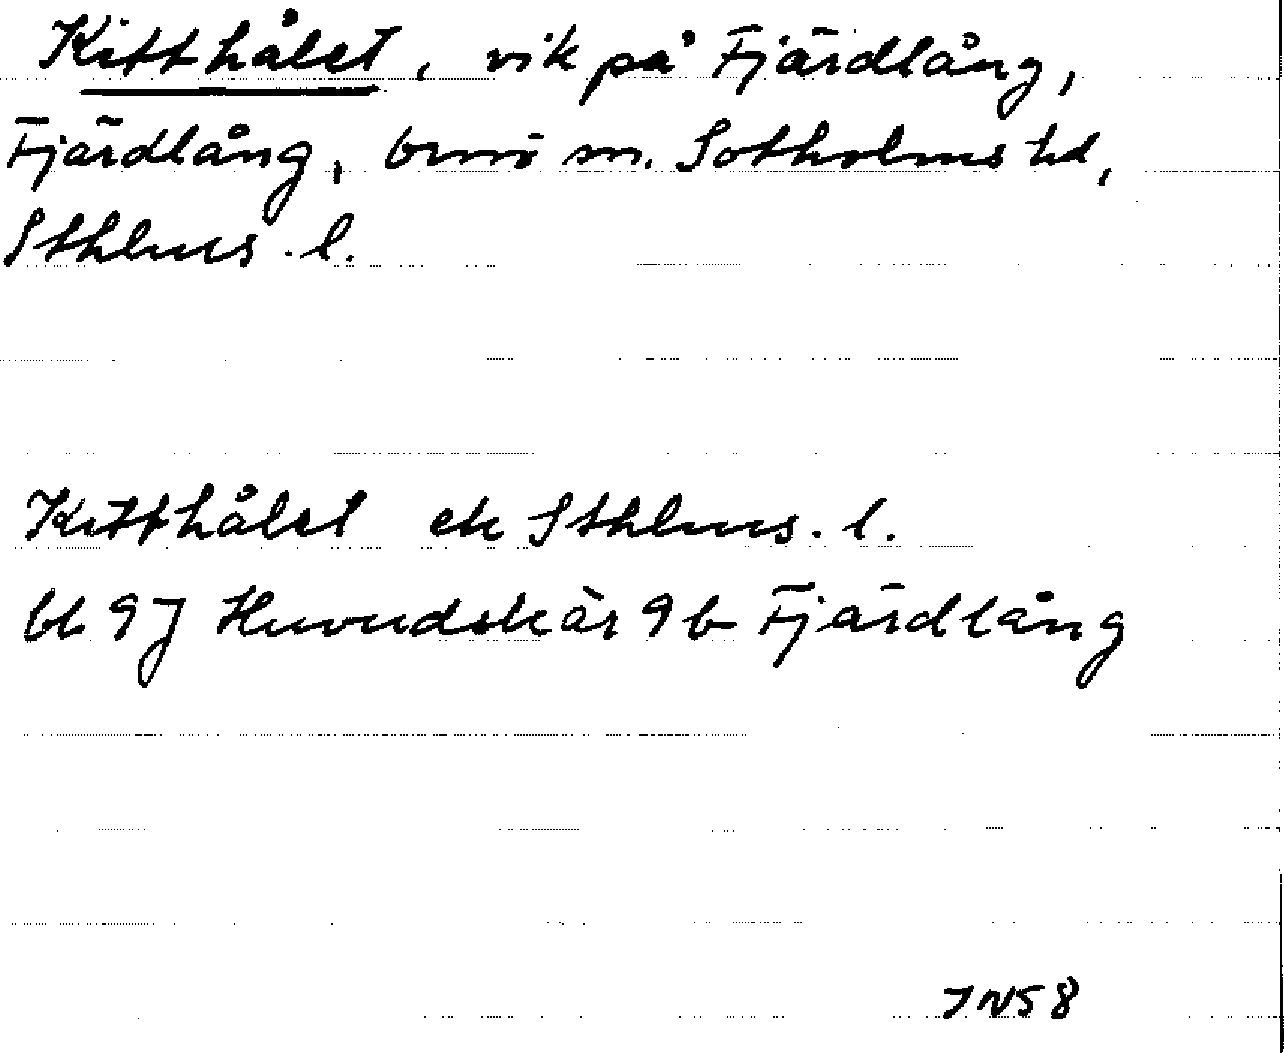 Kitthålet, vik på Fjärdlång,
Fjärdlång, Ornö sn. Sotholms hd,
Sthlms. l.
Kitthålet ek Sthlms. l.
bl 9J Huvudskär 9b Fjärdlång
JN58